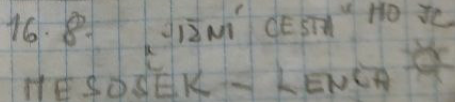 16. 8. "JIŽNÍ CESTA" HO JČ
MESOSEK - LENCA